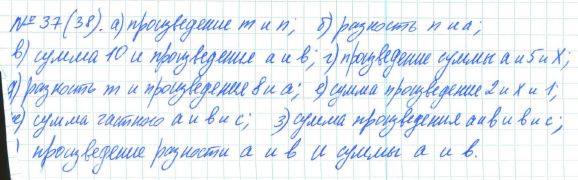 № 37(38). а) произведение m и n; б) разность n и а;
в) сумма 10 и произведение а и в; г) произведение суммы а и 5 и х;
д) разность m и произведения 8 и а; е) сумма произведение 2 и х и 1;
ж) сумма частного а и в и с; з) сумма произведения а и в и в и с;
произведение разности а и в и суммы а и в.